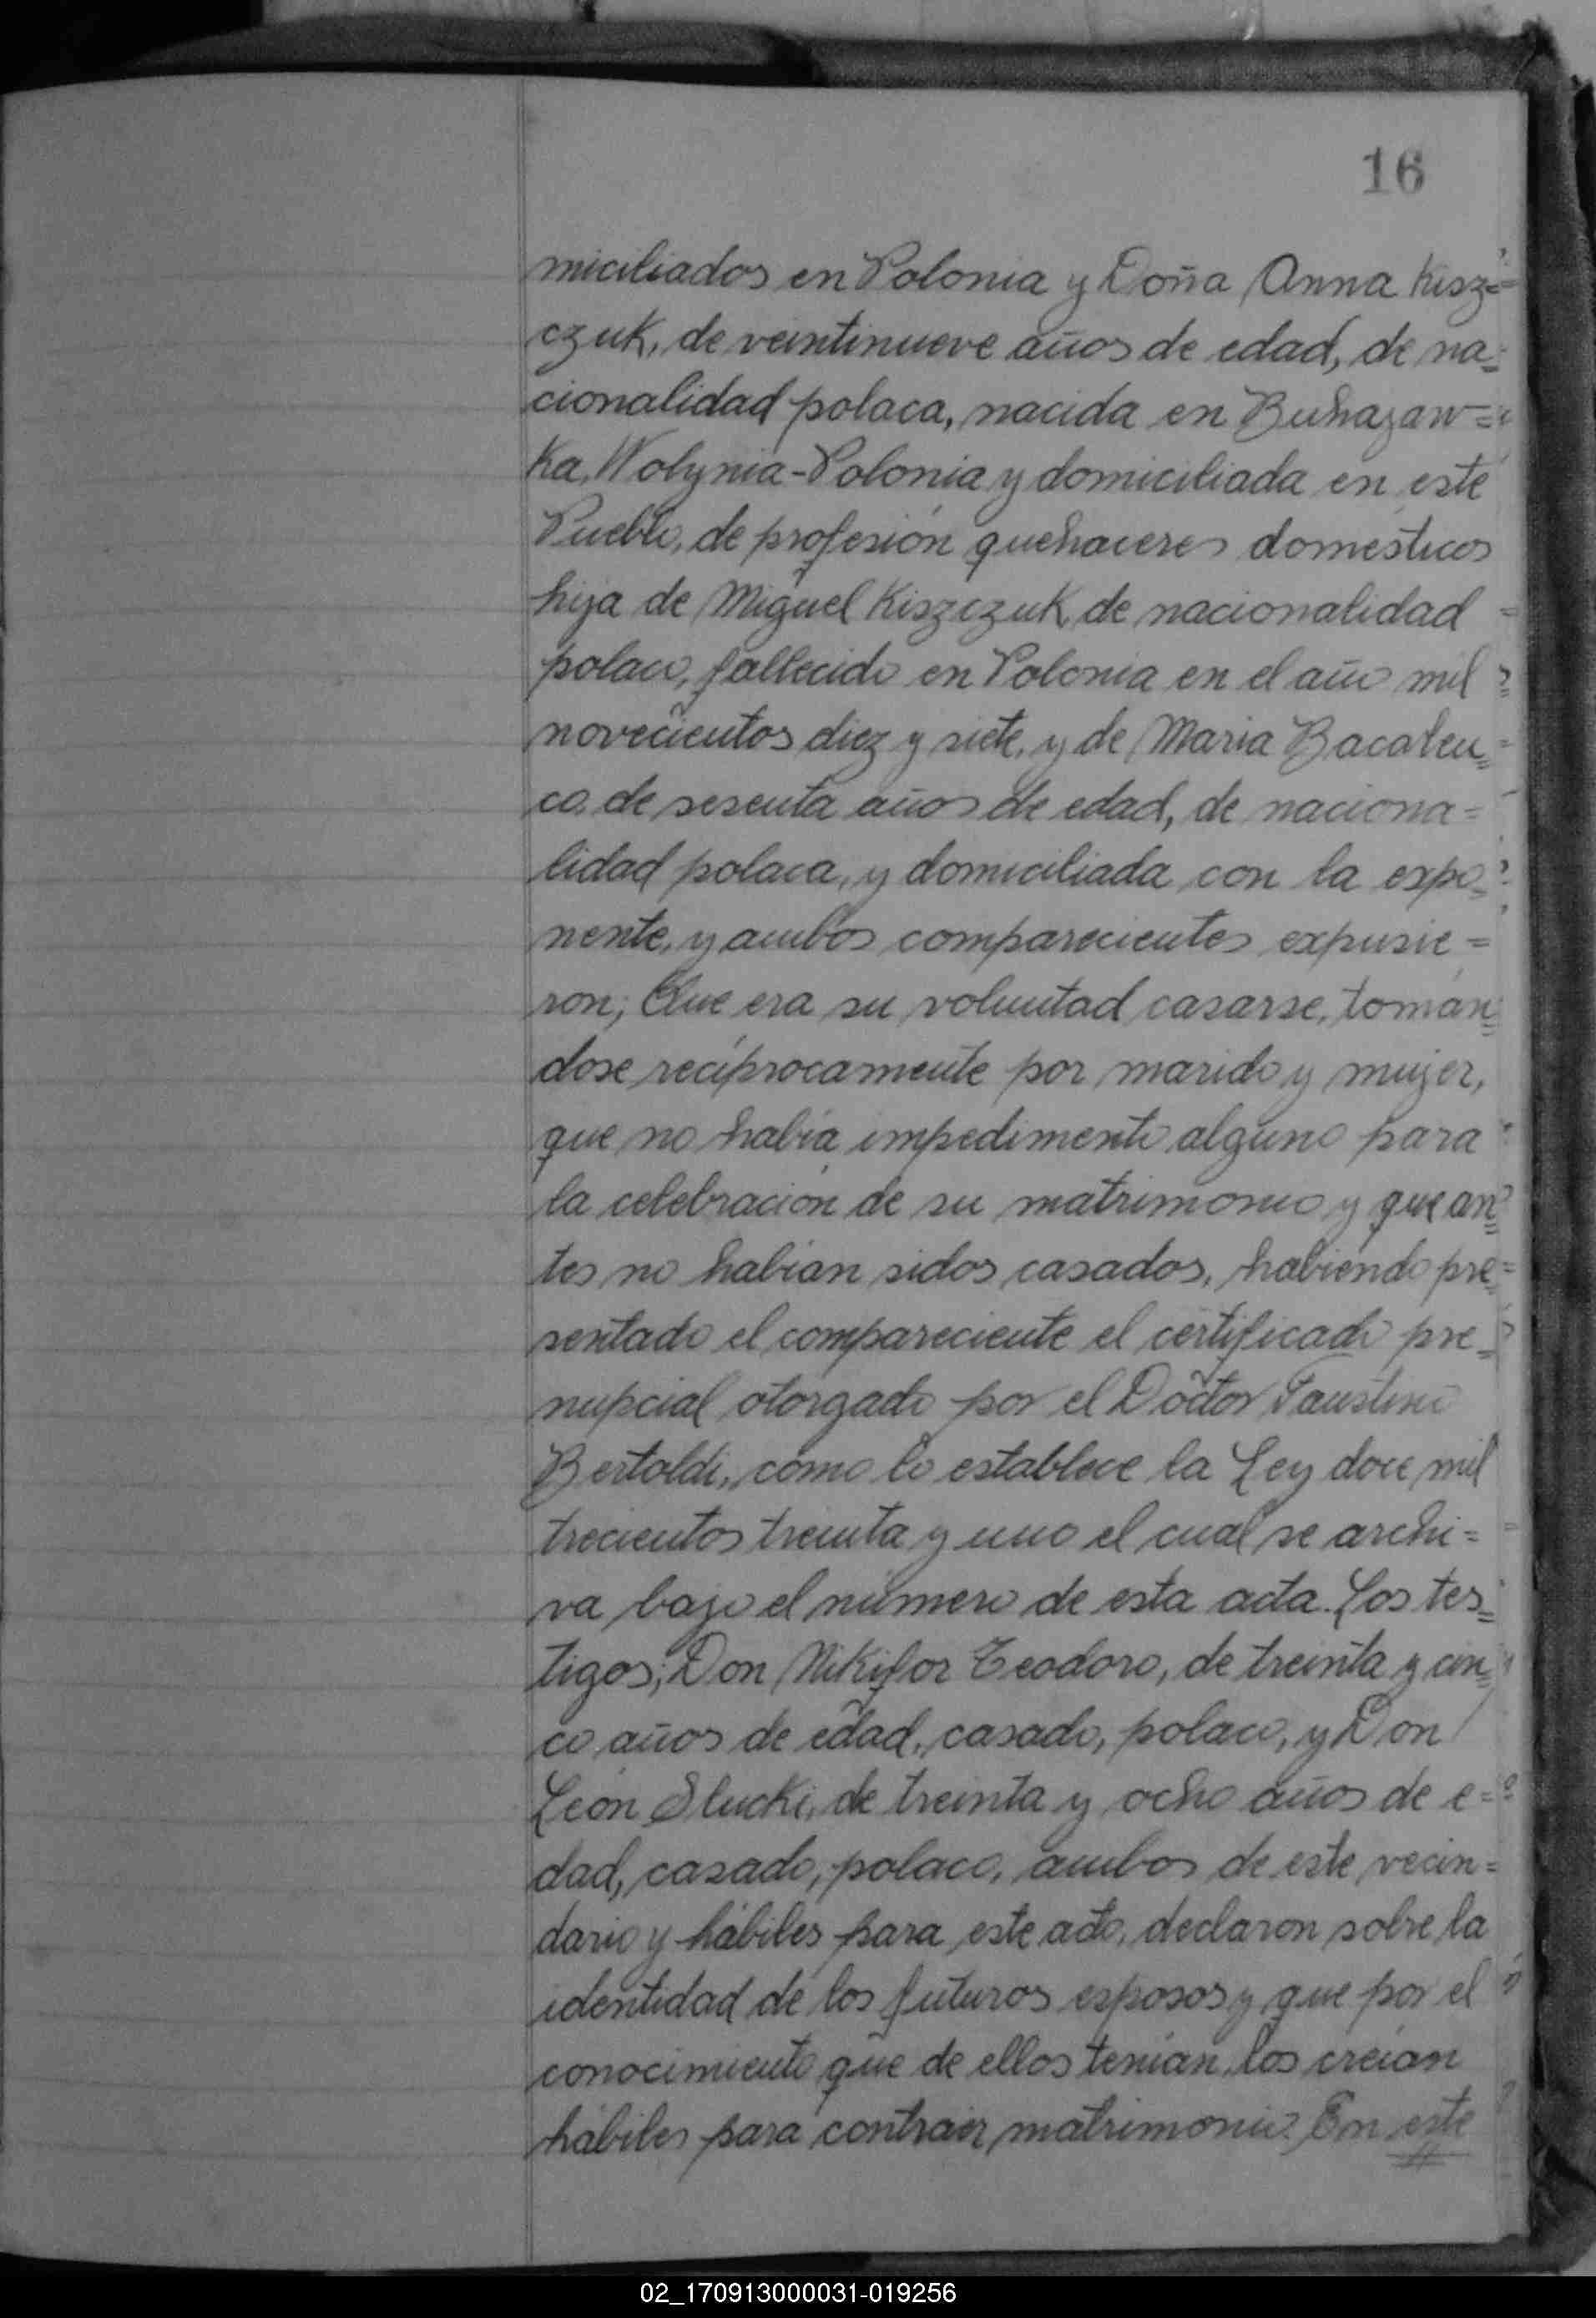 16
miciliados en Polonia y Doña Anna Kisz=
czuk, de veintinueve años de edad, de na=
cionalidad polaca, nacida en Buhazaw=
ka, Wolynia-Polonia y domiciliada en este
Pueblo, de profesión quehaceres domésticos
hija de Miguel Kiszczuk, de nacionalidad
polaco, fallecido en Polonia en el año mil
novecientos diez y siete, y de Maria Bacaleu=
co, de sesenta años de edad, de naciona=
lidad polaca, y domiciliada con la expo=
nente, y ambos comparecientes expusie=
ron; Que era su voluntad casarse, toman=
dose recíprocamente por marido y mujer,
que no había impedimento alguno para
la celebración de su matrimonio y que an=
tes no habían sidos casados, habiendo pre=
sentado el compareciente el certificado pre=
nupcial otorgado por el Doctor Faustino
Bertoldi, como lo establece la Ley doce mil
trecientos treinta y uno el cual se archi=
va bajo el número de esta acta. Los tes=
tigos; Don Nikifor Teodoro, de treinta y cin=
co años de edad, casado, polaco, y Don
León Slucki, de treinta y ocho años de e=
dad, casado, polaco, ambos de este vecin=
dario y hábiles para este acto, declaron sobre la
identidad de los futuros esposos y que por el
conocimiento que de ellos tenían, los creían
hábiles para contraer matrimonio. En este
02_170913000031-019256